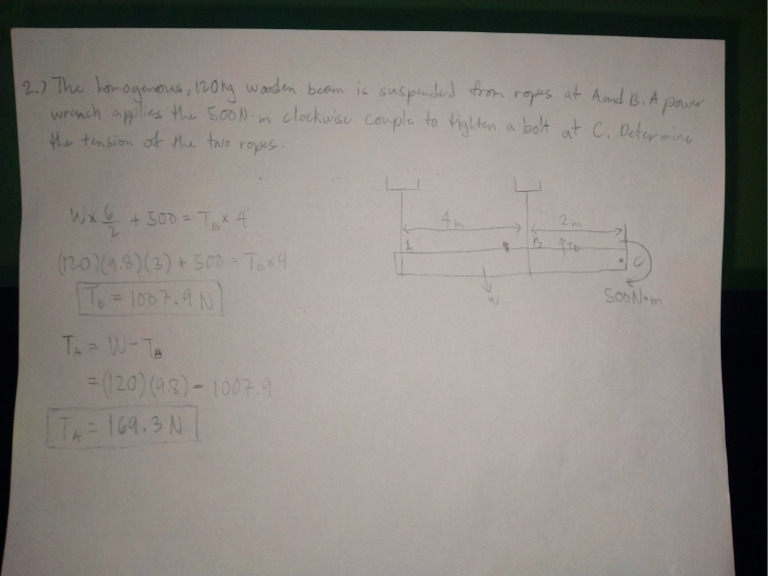 2.) The homogenous, 120kg wooden beam is suspended from ropes at A and B. A power
wrench applies the 500N·m clockwise couple to tighten a bolt at C. Determine
the tension of the two ropes.
W x 6/2 + 500 = T_B x 4
(120)(9.8)(3) + 500 = T_B x 4
T_B = 1007.9 N
T_A = W - T_B
= (120)(9.8) - 1007.9
T_A = 169.3 N
4m
2m
A
B
T_B
C
W
500N·m